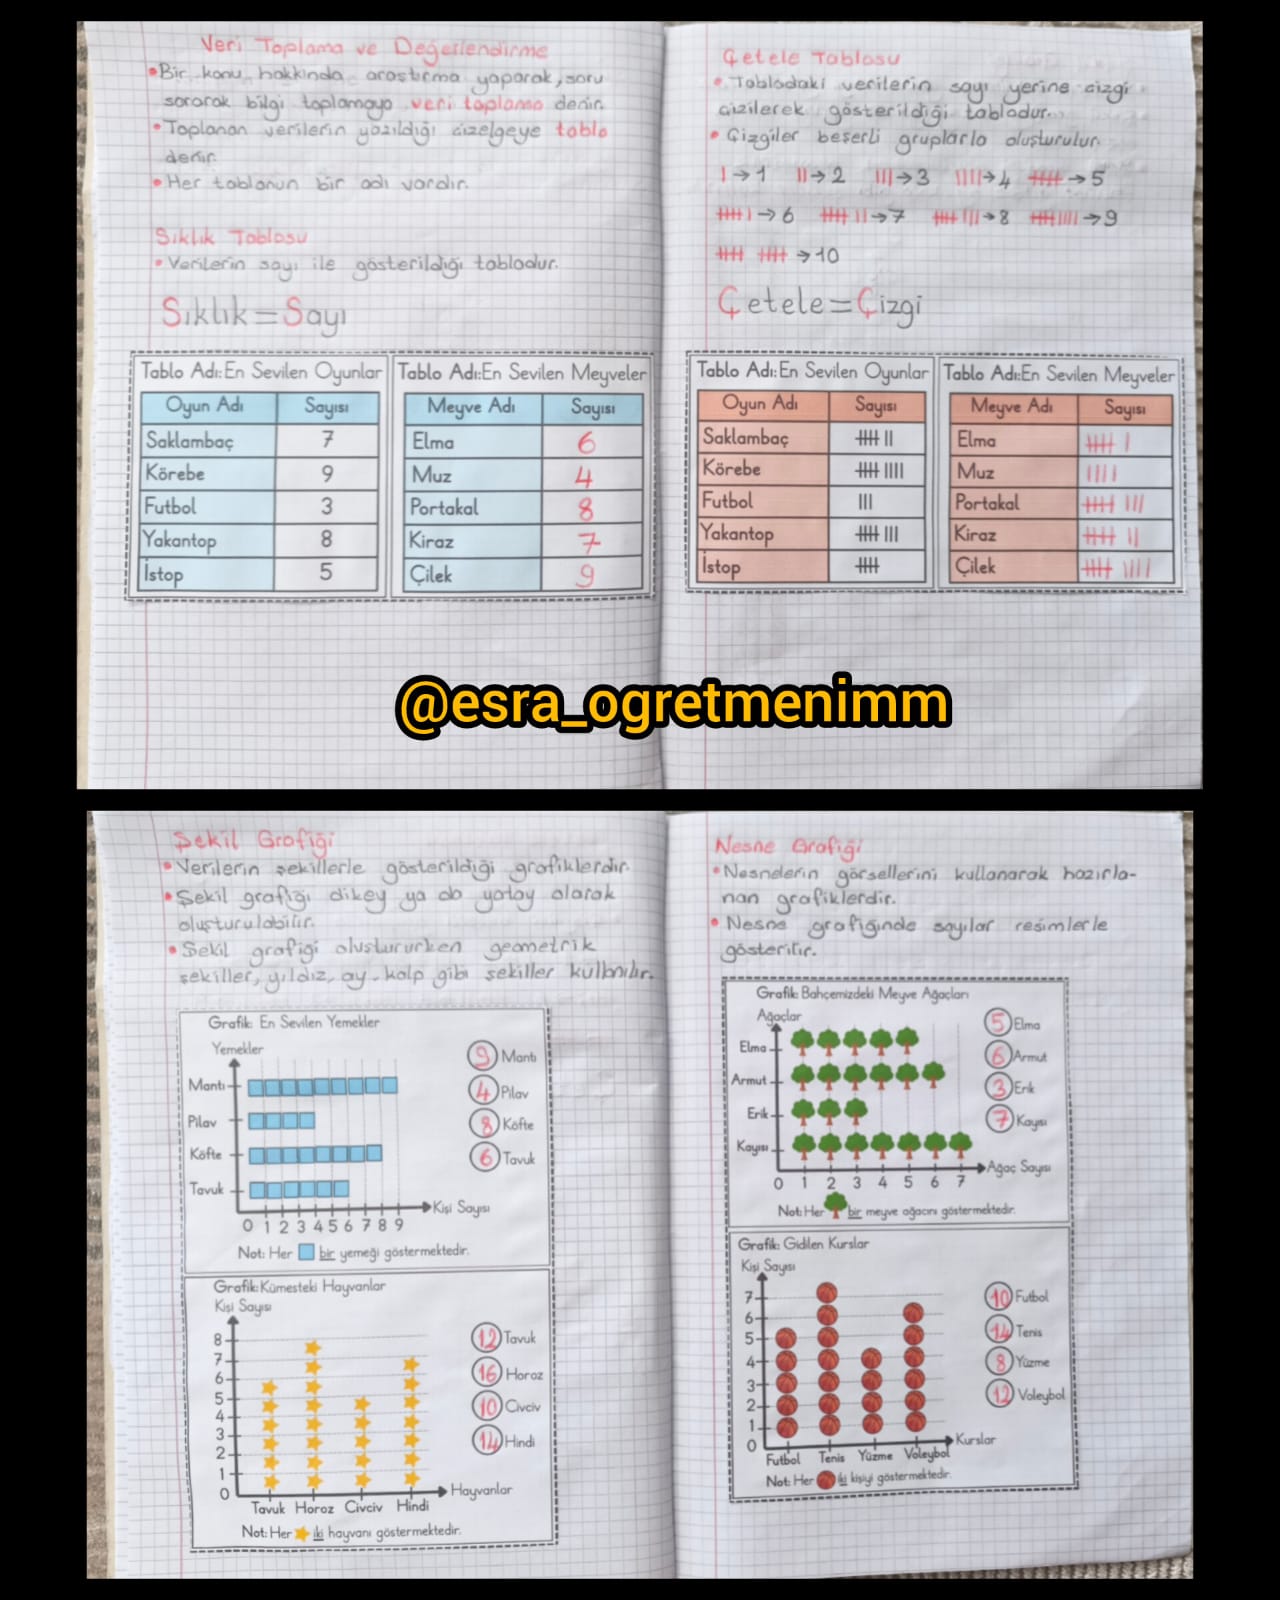 Veri Toplama ve Değerlendirme
• Bir konu hakkında araştırma yaparak, soru
sorarak bilgi toplamaya veri toplama denir.
• Toplanan verilerin yazıldığı çizelgeye tablo
denir.
• Her tablonun bir adı vardır.
Sıklık Tablosu
• Verilerin sayı ile gösterildiği tablodur.
Sıklık = Sayı
Tablo Adı: En Sevilen Oyunlar
Oyun Adı Sayısı
Saklambaç 7
Körebe 9
Futbol 3
Yakantop 8
İstop 5
Tablo Adı: En Sevilen Meyveler
Meyve Adı Sayısı
Elma 6
Muz 4
Portakal 8
Kiraz 7
Çilek 9
Çetele Tablosu
• Tablodaki verilerin sayı yerine çizgi
çizilerek gösterildiği tablodur.
• Çizgiler beşerli gruplarla oluşturulur.
→1 →2 →3 →4 →5
→6 →7 →8 →9
→10
Çetele = Çizgi
Tablo Adı: En Sevilen Oyunlar
Oyun Adı Sayısı
Saklambaç
Körebe
Futbol
Yakantop
İstop
Tablo Adı: En Sevilen Meyveler
Meyve Adı Sayısı
Elma
Muz
Portakal
Kiraz
Çilek
@esra_ogretmenimm
Şekil Grafiği
• Verilerin şekillerle gösterildiği grafiklerdir.
• Şekil grafiği dikey ya da yatay olarak
oluşturulabilir.
• Şekil grafiği oluştururken geometrik
şekiller, yıldız, ay, kalp gibi şekiller kullanılır.
Grafik: En Sevilen Yemekler
Yemekler
Mantı
Pilav
Köfte
Tavuk
0 1 2 3 4 5 6 7 8 9
Kişi Sayısı
9 Mantı
4 Pilav
8 Köfte
6 Tavuk
Not: Her bir yemeği göstermektedir.
Grafik: Kümesteki Hayvanlar
Kişi Sayısı
8
7
6
5
4
3
2
1
0
Tavuk Horoz Civciv Hindi
Hayvanlar
12 Tavuk
16 Horoz
10 Civciv
14 Hindi
Not: Her iki hayvanı göstermektedir.
Nesne Grafiği
• Nesnelerin görsellerini kullanarak hazırla-
nan grafiklerdir.
• Nesne grafiğinde sayılar resimlerle
gösterilir.
Grafik: Bahçemizdeki Meyve Ağaçları
Ağaçlar
Elma
Armut
Erik
Kayısı
0 1 2 3 4 5 6 7
Ağaç Sayısı
5 Elma
6 Armut
3 Erik
7 Kayısı
Not: Her bir meyve ağacını göstermektedir.
Grafik: Gidilen Kurslar
Kişi Sayısı
7
6
5
4
3
2
1
0
Futbol Tenis Yüzme Voleybol
Kurslar
10 Futbol
14 Tenis
8 Yüzme
12 Voleybol
Not: Her iki kişiyi göstermektedir.